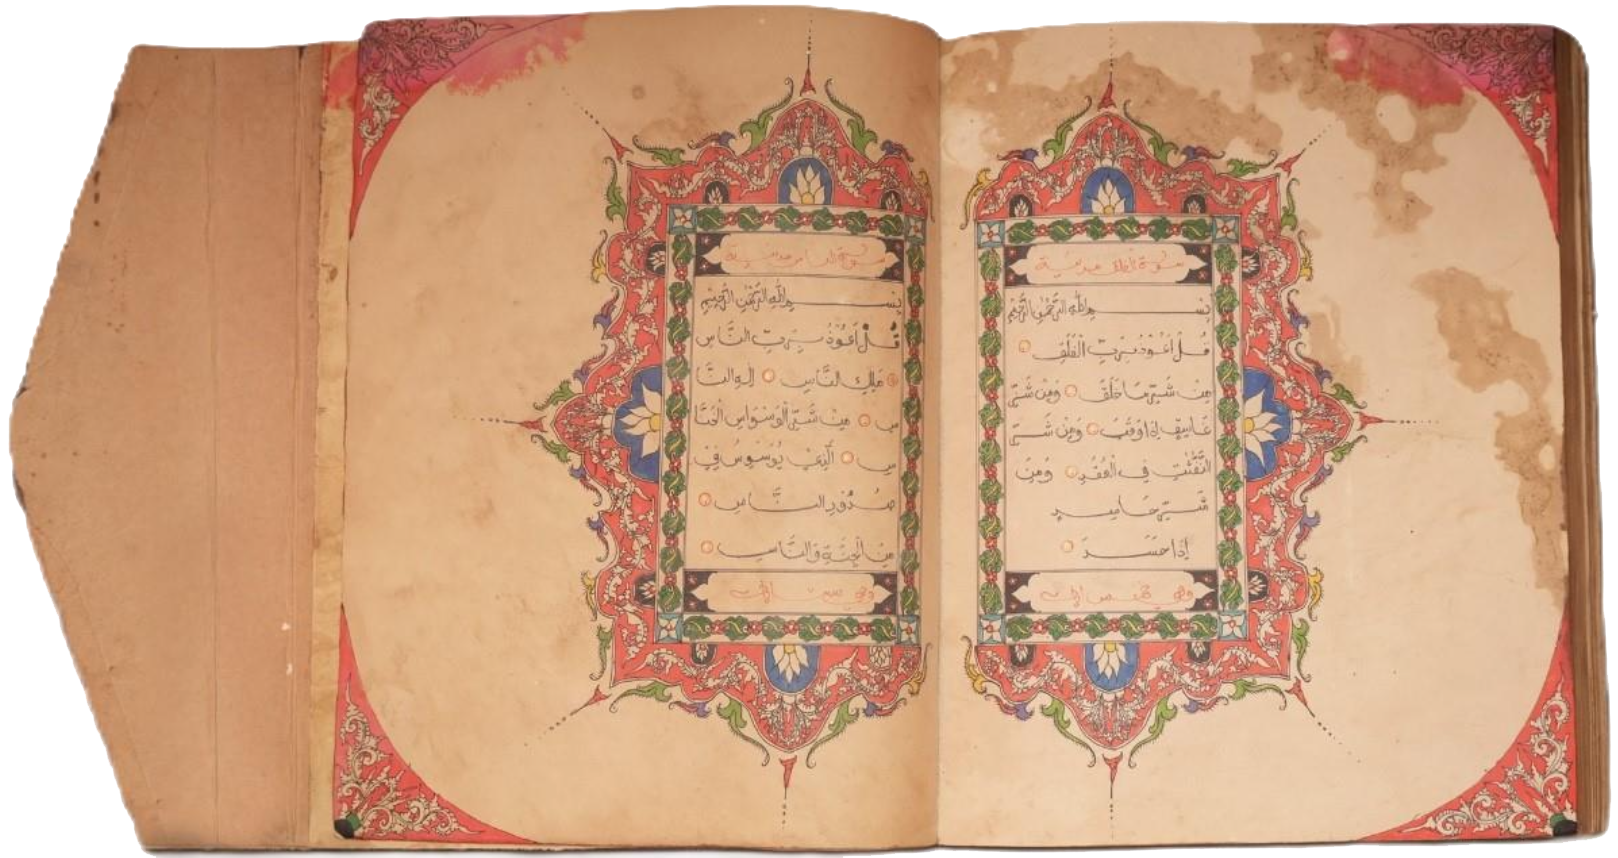 سورة الفلق مدنية
بســـــم الله الرَّحْمٰنِ الرَّحِيْمِ
قُلْ اَعُوْذُ بِرَبِّ الْفَلَقِ
مِنْ شَرِّ مَا خَلَقَ وَمِنْ شَرِّ
غَاسِقٍ اِذَا وَقَبَ وَمِنْ شَرِّ
النَّفّٰثٰتِ فِى الْعُقَدِ وَمِنْ
شَرِّ حَاسِدٍ
اِذَا حَسَدَ
وهي خمس ايات
سورة الناس مدنية
بســـــم الله الرَّحْمٰنِ الرَّحِيْمِ
قُلْ اَعُوْذُ بِرَبِّ النَّاسِ
مَلِكِ النَّاسِ اِلٰهِ النَّا
سِ مِنْ شَرِّ الْوَسْوَاسِ الْخَنَّا
سِ الَّذِيْ يُوَسْوِسُ فِيْ
صُدُوْرِ النَّاسِ
مِنَ الْجِنَّةِ وَالنَّاسِ
وهي ايات